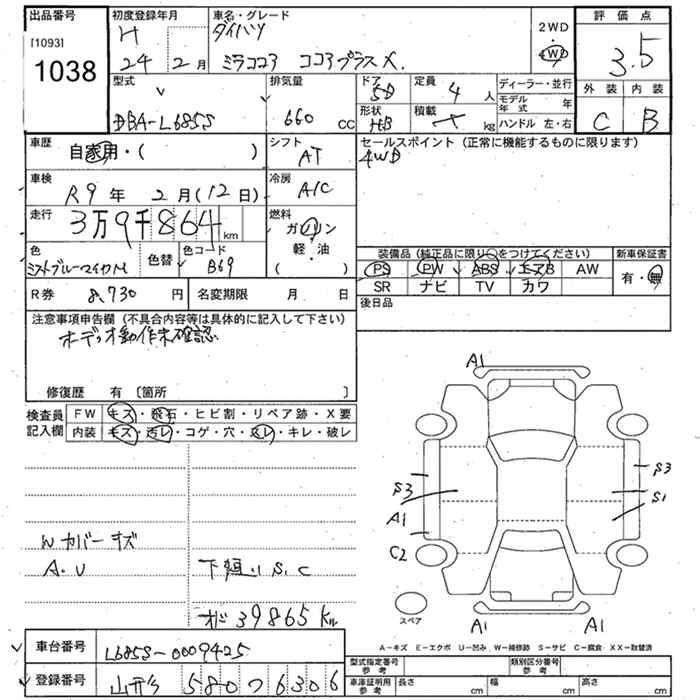 出品番号
[1093]
1038
初度登録年月
H
24 2月
車名・グレード
ダイハツ
ミラココア ココアプラスX
2WD
・
4WD
評価点
3.5
外装 内装
C B
型式
DBA-L685S
排気量
660 CC
ドア
5D
定員
4 人
形状
HB
積載
kg
ディーラー・並行
モデル年式 年
ハンドル 左・右
車歴
自家用・( )
シフト
AT
セールスポイント (正常に機能するものに限ります)
4WD
車検
R9年 2月(12日)
冷房
A/C
走行
3万9千864km
燃料
ガソリン
軽・油
( )
色
ミストブルーマイカM
色替
色コード
B69
装備品 (純正品に限り○をつけてください)
PS PW ABS エアB AW
SR ナビ TV カワ
新車保証書
有・無
R券 8,730 円
名変期限 月 日
後日品
注意事項申告欄 (不具合内容等は具体的に記入して下さい)
オーディオ動作未確認
修復歴 有 〔箇所 〕
検査員記入欄
FW キズ・飛石・ヒビ割・リペア跡・X要
内装 キズ・汚レ・コゲ・穴・スレ・キレ・破レ
Wカバーキズ
A.U
下廻り S.C
オド39865km
A1
S3
A1
C2
S3
S1
A1
A1
スペア
A-キズ E-エクボ U-凹み W-補修跡 S-サビ C-腐食 XX-取替済
車台番号
L685S-0009425
登録番号
山形 580 つ 6306
型式指定番号
参考
類別区分番号
参考
車庫証明用
参考
長さ cm
幅 cm
高さ cm